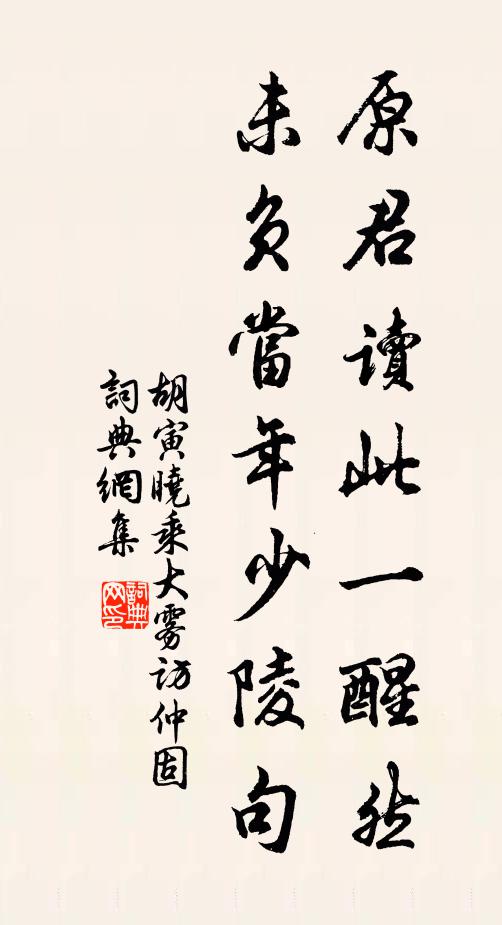 原君讀此一醒然
未負當年少陵句
胡寅曉乘大霧訪仲固
詞典網集
詞典网印